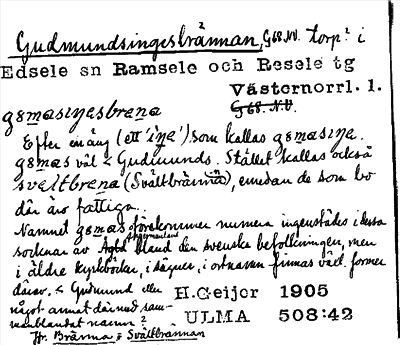 Gudmundsingesbrännan, G68.NV. torp? i
Edsele sn Ramsele och Resele tg
Västernorrl. l.
G 68. N.V.
gɵmasinɛsbrɛna
Efter en äng (ett 'iŋɛ') som kallas gɵmasiŋɛ.
gɵmas väl < Gudmunds. Stället kallas också
svɛltbrɛna (Svältbränna), emedan de som bo
där äro fattiga.
Namnet gɵmas förekommer numera ingenstädes i dessa
socknar av bland den svenska befolkningen, men
i äldre kyrkböcker, i sägner, i ortnamn finnas väl former
därav. < Gudmund eller
något annat därmed sam-
manblandat namn?
H.Geijer 1905
ULMA 508:42
Jfr. Bränna & Svältbrännan